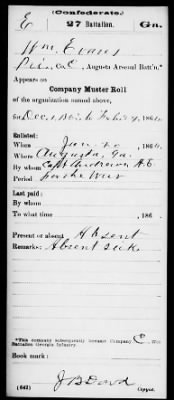 (Confederate.)
E 27 Battalion. Ga.
Wm. Evans
Pvt., Co. C, Augusta Arsenal Batt'n.*
Appears on
Company Muster Roll
of the organization named above,
for Dec. 186
Enlisted:
When Jan. 20, 186
Where Augusta, Ga.
By whom Capt. Andrews
Period for the War
Last paid:
By whom
To what time , 186 .
Present or absent Absent
Remarks: Absent sick
*This company subsequently became Company C, 27th
Battalion Georgia Infantry.
Book mark:
(642) Copyist.